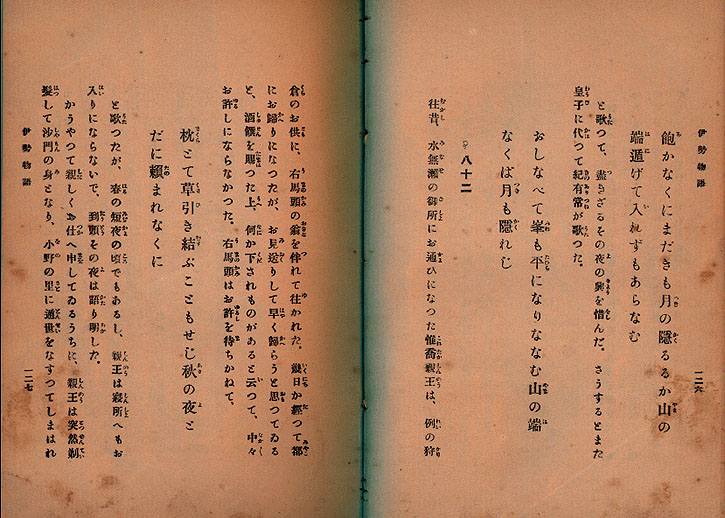 伊勢物語
一二六
飽かなくにまだきも月の隱るるか山の
端遁げて入れずもあらなむ
と歌つて、盡きざるその夜の興を惜んだ。さうするとまた
皇子に代つて紀有常が歌つた。
おしなべて峯も平になりななむ山の端
なくば月も隱れじ
八十二
往昔、水無瀬の御所にお通ひになつた惟喬親王は、例の狩
倉のお供に、右馬頭の翁を伴れて往かれた。幾日か經つて都
にお歸りになつたが、お見送りして早く歸らうと思つてゐる
と、酒饌を賜つた上、何か下されものがあると云つて、中々
お許しにならなかつた。右馬頭はお許を待ちかねて、
枕とて草引き結ぶこともせじ秋の夜と
だに賴まれなくに
と歌つたが、春の短夜の頃でもあるし、親王は寢所へもお
入りにならないで、到頭その夜は語り明した。
かうやつて親しくお仕へ申してゐるうちに、親王は突然剃
髮して沙門の身となり、小野の里に遁世をなすつてしまはれ
伊勢物語
一二七